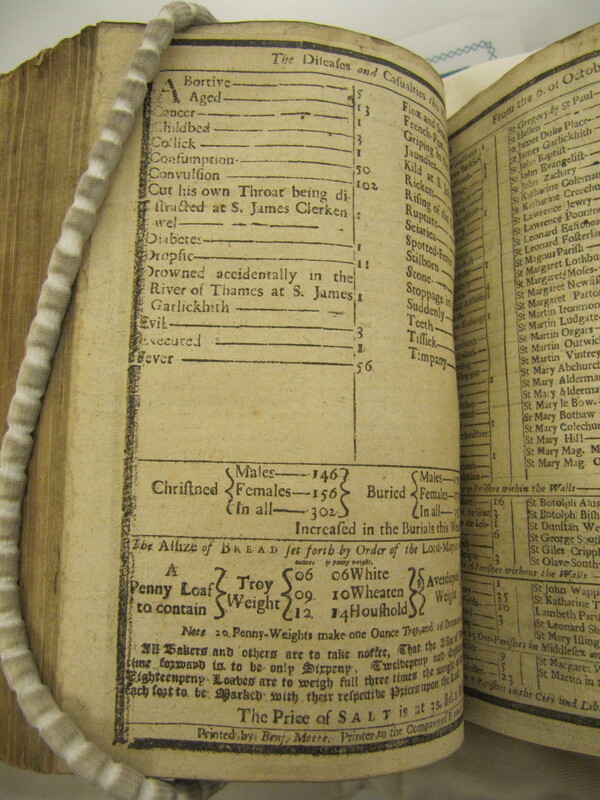 The Diseases and Casualties this
Abortive 5
Aged 13
Cancer 1
Childbed 3
Collick 1
Consumption 50
Convulsion 102
Cut his own Throat being di-
stracted at S. James Clerken 1
wel
Diabetes 1
Dropsie 11
Drowned accidentally in the
River of Thames at S. James 1
Garlickhith
Evil 3
Executed 1
Fever 56
Flox and
French-
Griping in
Jaundi
Kild at
Ricket
Rising of
Rupture
Sciatic
Spotted-
Stilborn
Stone
Stoppage in
Suddenly
Teeth
Tissick
Timpany
Christned
Males 146
Females 156
In all 302
Buried
Males
Females
In all
Increased in the Burials this
The Assize of BREAD set forth by Order of the Lord-
A
Penny Loaf
to contain
Troy
Weight
ounces penny weight,
06 06 White
09 10 Wheaten
12 14 Houshold
Averdupois
Weight
Note 20 Penny-Weights make one Ounce Troy, and 16
All Bakers and others are to take notice, That the Assize of
time forward is to be only Sixpeny, Twelvepeny and
Eighteenpeny Loaves are to weigh full three times the weight
Each sort to be Marked with their respective Prices upon the
The Price of SALT is at
Printed by Benj. Motte, Printer to the Company of
From the 6. of Octob
St Gregory by St Paul
St Hellen
St James Duke Place
St James Garlickhith
St John Baptist
St John Evangelist
St John Zachary
St Katharine Coleman
St Katharine Creechu
St Lawrence Jewry
St Lawrence Pountne
St Leonard Eastcheap
St Leonard Fosterla
St Magnus Parish
St Margaret Lothbu
St Margaret Moses
St Margaret Newfis
St Margaret Patto
St Martin Ironmon
St Martin Ludgate
St Martin Orgars
St Martin Outwic
St Martin Vintrey
St Mary Abchurc
St Mary Alderma
St Mary Alderma
St Mary le Bow
St Mary Bothaw
St Mary Colechu
St Mary Hill
St Mary Mag. M
St Mary Mag. O
Parishes within the Walls
16 St Botolph Ald
St Botolph Bish
St Dunstan We
St George Sout
St Giles Crippl
St Olave Southw
Parishes without the Walls
St John Wapp
St Katharine T
Lambeth Pari
St Leonard Sh
St Mary Isling
Out-Parishes in Middlesex an
9 St Margaret W
23 St Martin in t
Parishes in the City and Lib